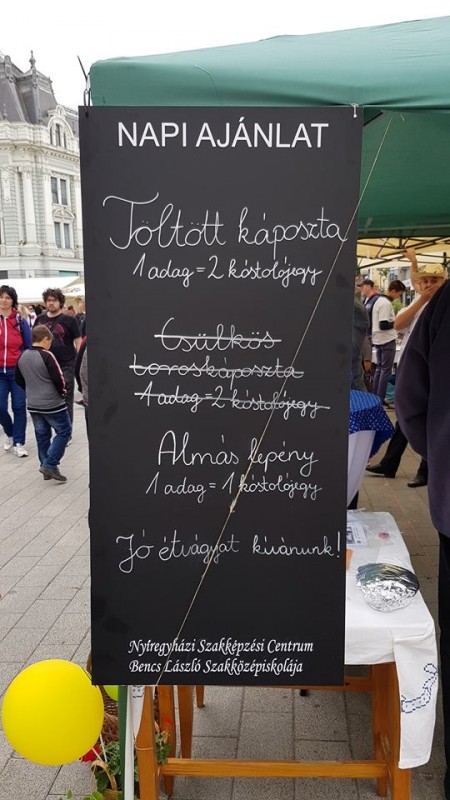 NAPI AJÁNLAT
Töltött káposzta
1 adag = 2 kóstolójegy
Csülkös
toroskáposzta
1 adag = 2 kóstolójegy
Almás lepény
1 adag = 1 kóstolójegy
Jó étvágyat kívánunk!
Nyíregyházi Szakképzési Centrum
Bencs László Szakközépiskolája